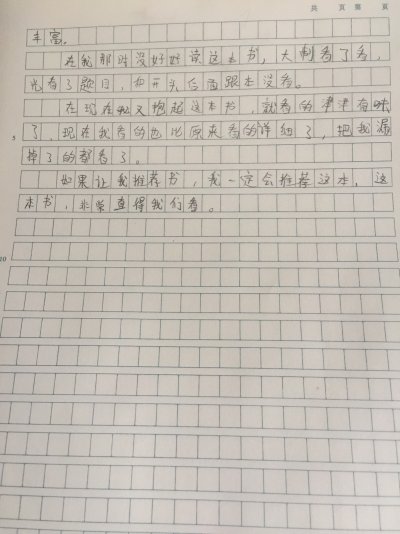 共 页 第 页
丰富。
在我那时没好好读这本书，大制看了看，
光看了题目，和开头后面跟本没看。
在现在我又抱起这本书，就看的津津有味
了，现在我看的也比原来看的详细了，把我漏
掉了的都看了。
如果让我推荐书，我一定会推荐这本，这
本书，非常直得我们看。
5
10